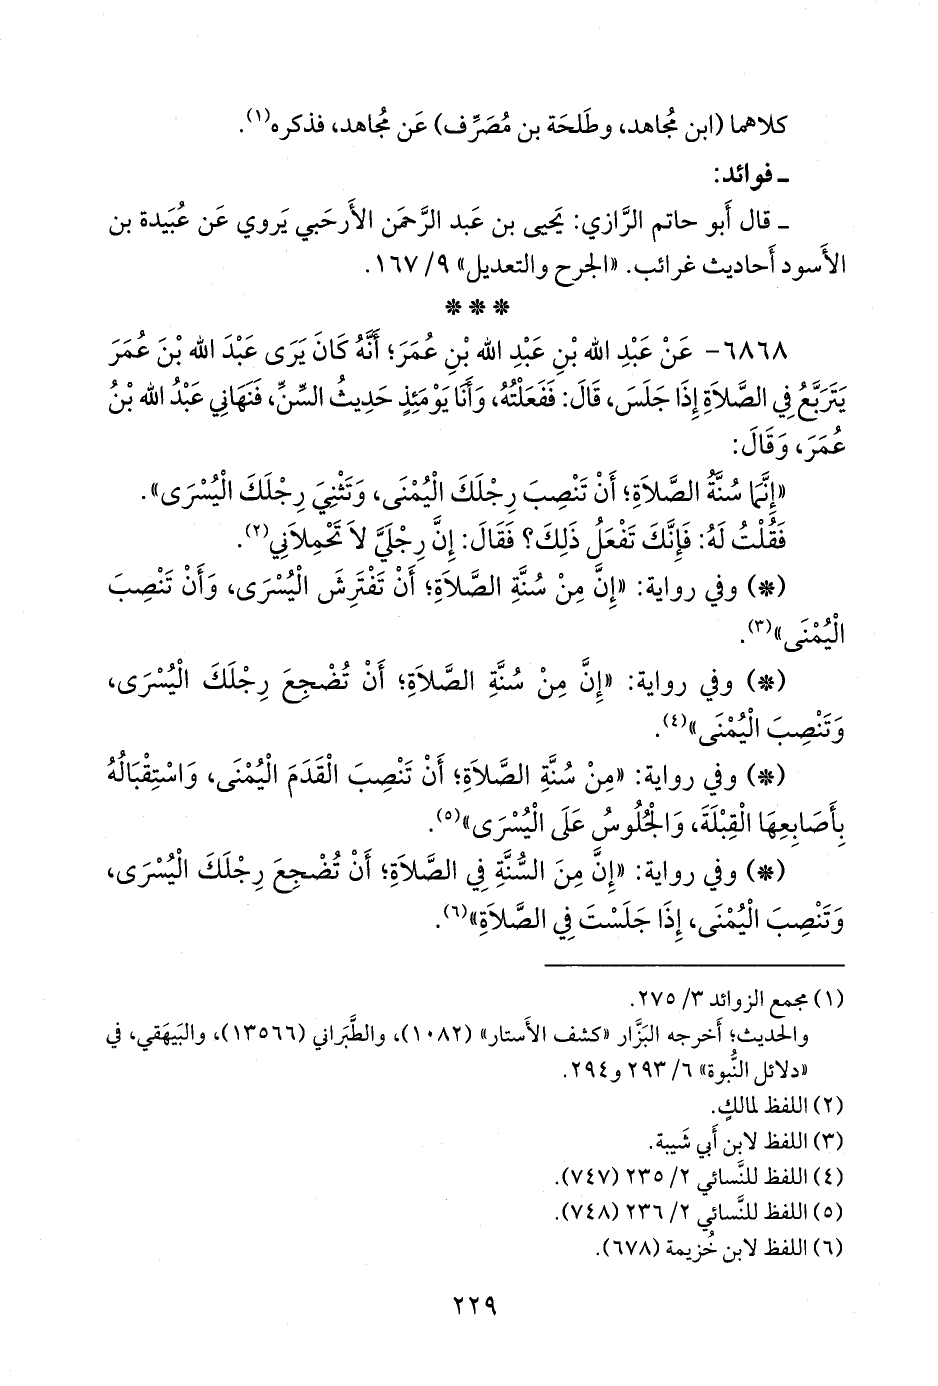 كلاهما (ابن مُجاهد، وطَلحَة بن مُصَرِّف) عَن مُجاهد، فذكره(١).
ـ فوائد:
ـ قال أَبو حاتم الرَّازي: يَحيى بن عَبد الرَّحمَن الأَرحَبي يَروي عَن عُبَيدة بن
الأَسود أَحاديث غرائب. «الجرح والتعديل» ٩/ ١٦٧.
* * *
٦٨٦٨- عَنْ عَبْدِ الله بْنِ عَبْدِ الله بْنِ عُمَرَ؛ أَنَّهُ كَانَ يَرَى عَبْدَ الله بْنَ عُمَرَ
يَتَرَبَّعُ فِي الصَّلاَةِ إِذَا جَلَسَ، قَالَ: فَفَعَلْتُهُ، وَأَنَا يَوْمَئِذٍ حَدِيثُ السِّنِّ، فَنَهَانِي عَبْدُ الله بْنُ
عُمَرَ، وَقَالَ:
«إِنَّمَا سُنَّةُ الصَّلاَةِ؛ أَنْ تَنْصِبَ رِجْلَكَ الْيُمْنَى، وَتَثْنِيَ رِجْلَكَ الْيُسْرَى».
فَقُلْتُ لَهُ: فَإِنَّكَ تَفْعَلُ ذَلِكَ؟ فَقَالَ: إِنَّ رِجْلَيَّ لاَ تَحْمِلاَنِي(٢).
(*) وفي رواية: «إِنَّ مِنْ سُنَّةِ الصَّلاَةِ؛ أَنْ تَفْتَرِشَ الْيُسْرَى، وَأَنْ تَنْصِبَ
الْيُمْنَى»(٣).
(*) وفي رواية: «إِنَّ مِنْ سُنَّةِ الصَّلاَةِ؛ أَنْ تُضْجِعَ رِجْلَكَ الْيُسْرَى،
وَتَنْصِبَ الْيُمْنَى»(٤).
(*) وفي رواية: «مِنْ سُنَّةِ الصَّلاَةِ؛ أَنْ تَنْصِبَ الْقَدَمَ الْيُمْنَى، وَاسْتِقْبَالُهُ
بِأَصَابِعِهَا الْقِبْلَةَ، وَالْجُلُوسُ عَلَى الْيُسْرَى»(٥).
(*) وفي رواية: «إِنَّ مِنَ السُّنَّةِ فِي الصَّلاَةِ؛ أَنْ تُضْجِعَ رِجْلَكَ الْيُسْرَى،
وَتَنْصِبَ الْيُمْنَى، إِذَا جَلَسْتَ فِي الصَّلاَةِ»(٦).
(١) مجمع الزوائد ٣/ ٢٧٥.
والحديث؛ أَخرجه البَزَّار «كشف الأَستار» (١٠٨٢)، والطَّبَراني (١٣٥٦٦)، والبَيهَقي، في
«دلائل النُّبوة» ٦/ ٢٩٣ و٢٩٤.
(٢) اللفظ لمالكٍ.
(٣) اللفظ لابن أَبي شَيبة.
(٤) اللفظ للنَّسائي ٢/ ٢٣٥ (٧٤٧).
(٥) اللفظ للنَّسائي ٢/ ٢٣٦ (٧٤٨).
(٦) اللفظ لابن خُزيمة (٦٧٨).
٢٢٩